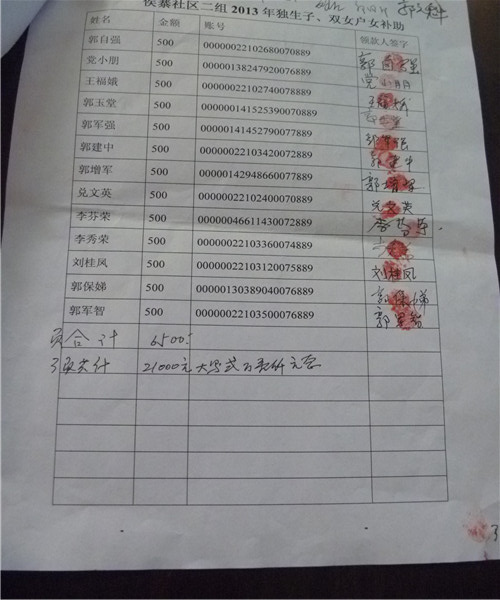 侯寨社区二组 2013 年独生子、双女户女补助
姓名 金额 账号 领款人签字
郭自强 500 00000022102680070889 郭自强
党小朋 500 00000138247920076889 党小朋
王福娥 500 00000022102740078889 王福娥
郭玉堂 500 00000141525390070889
郭军强 500 00000141452790077889 郭军强
郭建中 500 00000022103420072889 郭建中
郭增军 500 00000142948660077889 郭增军
兑文英 500 00000022102400070889 兑文英
李芬荣 500 00000046611430072889 李芬荣
李秀荣 500 00000022103360074889
刘桂凤 500 00000022103120075889 刘桂凤
郭保娣 500 00000130389040076889 郭保娣
郭军智 500 00000022103500076889 郭军智
页合计 6500
3页共计 21000元 大写贰万壹仟元
3